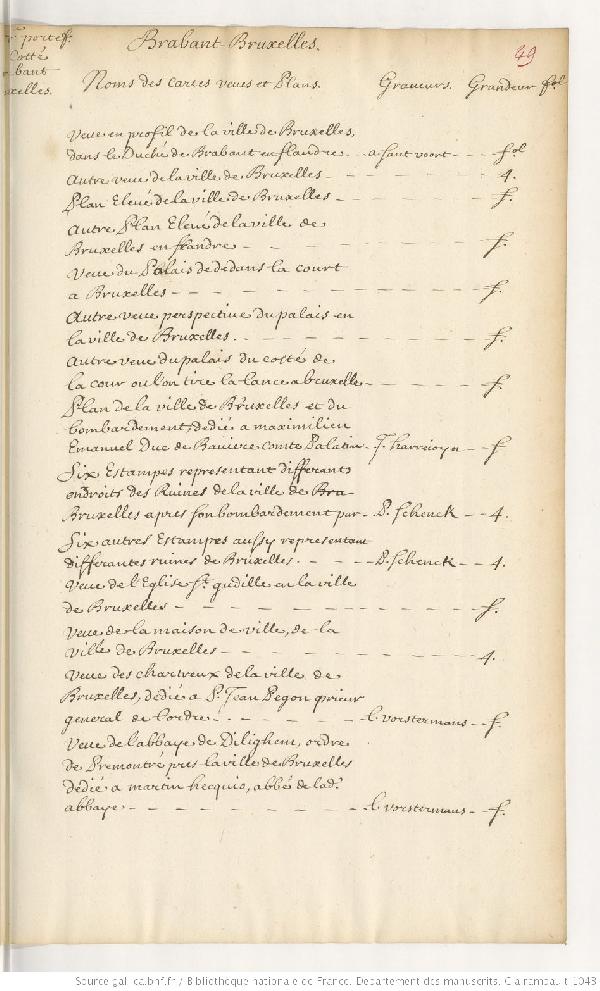 portef.
Cotté
bant
uxelles.
Brabant Bruxelles.
49
Noms des Cartes veues et Plans. Graveurs. Grandeur fol
Veue en profil de la ville de Bruxelles,
dans le Duché de Brabant en flandre - - a sant voort - - - fol
Autre veue de la ville de Bruxelles - - - - 4.
Plan Elevé de la ville de Bruxelles - - - - f.
Autre Plan Elevé de la ville de
Bruxelles en flandre - - - - f.
Veue du Palais dededans la court
a Bruxelles - - - - f.
Autre veue perspective du palais en
la ville de Bruxelles. - - - - f.
Autre veue du palais du costé de
la cour ou l'on tire la lance a bruxelle - - - - f.
Plan de la ville de Bruxelles et du
bombardement, dedié a maximilien
Emanuel Duc de Baviere comte Palatin - - f
Six Estampes representant differants
endroits des Ruines de la ville de Bra-
Bruxelles apres son bombardement par - P. Schenck - - 4.
Six autres Estampes aussy representant
differantes ruines de Bruxelles. - - - - P. Schenck - - 4.
Veue de l'Eglise Ste gudille en la ville
de Bruxelles - - - - f.
Veue de la maison de ville, de la
ville de Bruxelles - - - - 4.
Veue des chartreux de la ville de
Bruxelles, dedié a P. Jean Pegon prieur
general de l'ordre - - - - l. vorstermans - - f.
Veue de l'abbaye de Dilighem, ordre
de Premontré pres la ville de Bruxelles
dedié a martin hecquio, abbé de lad.
abbaye - - - - l. vorstermans - - f.
Source gallica.bnf.fr / Bibliothèque nationale de France. Département des manuscrits. Clairambault 1048